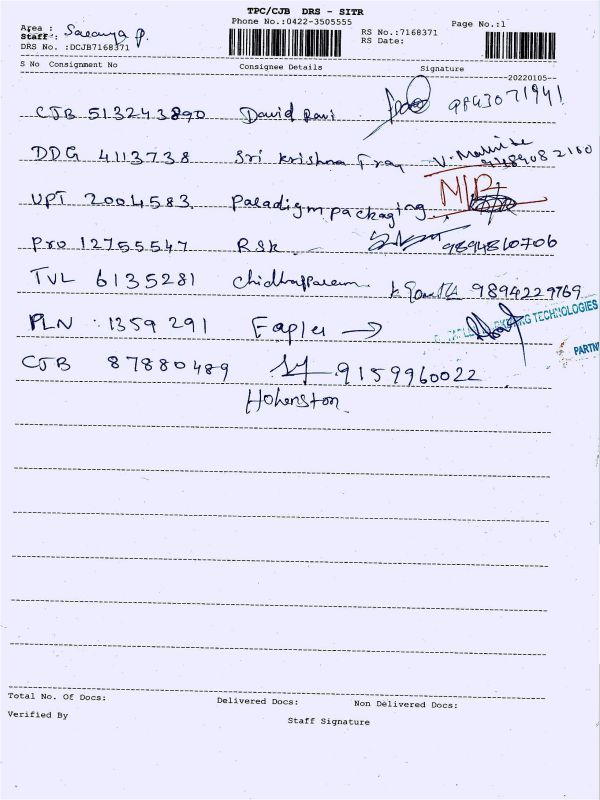 TPC/CJB DRS - SITR
Phone No.:0422-3505555
Page No.:1
Area :
Staff : Saranya P.
RS No.:7168371
RS Date:
DRS No. :DCJB7168371
S No Consignment No Consignee Details Signature
--20220105--
CJB 513243890 David Ravi 9843071941
DDG 4113738 Sri Krishna Tray
UPT 2004583. Paradigm packaging
Pro 12755547 RSK 9894810706
TVL 6135281 9894229769
PLN 1359291 Eagles →
TECHNOLOGIES
PARTN
CJB 87880489 9159960022
Hohenston
Total No. Of Docs: Delivered Docs: Non Delivered Docs:
Verified By Staff Signature